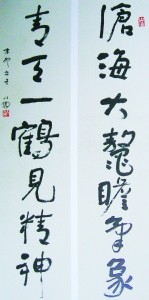 滄海大鼇瞻氣象
青天一鶴見精神